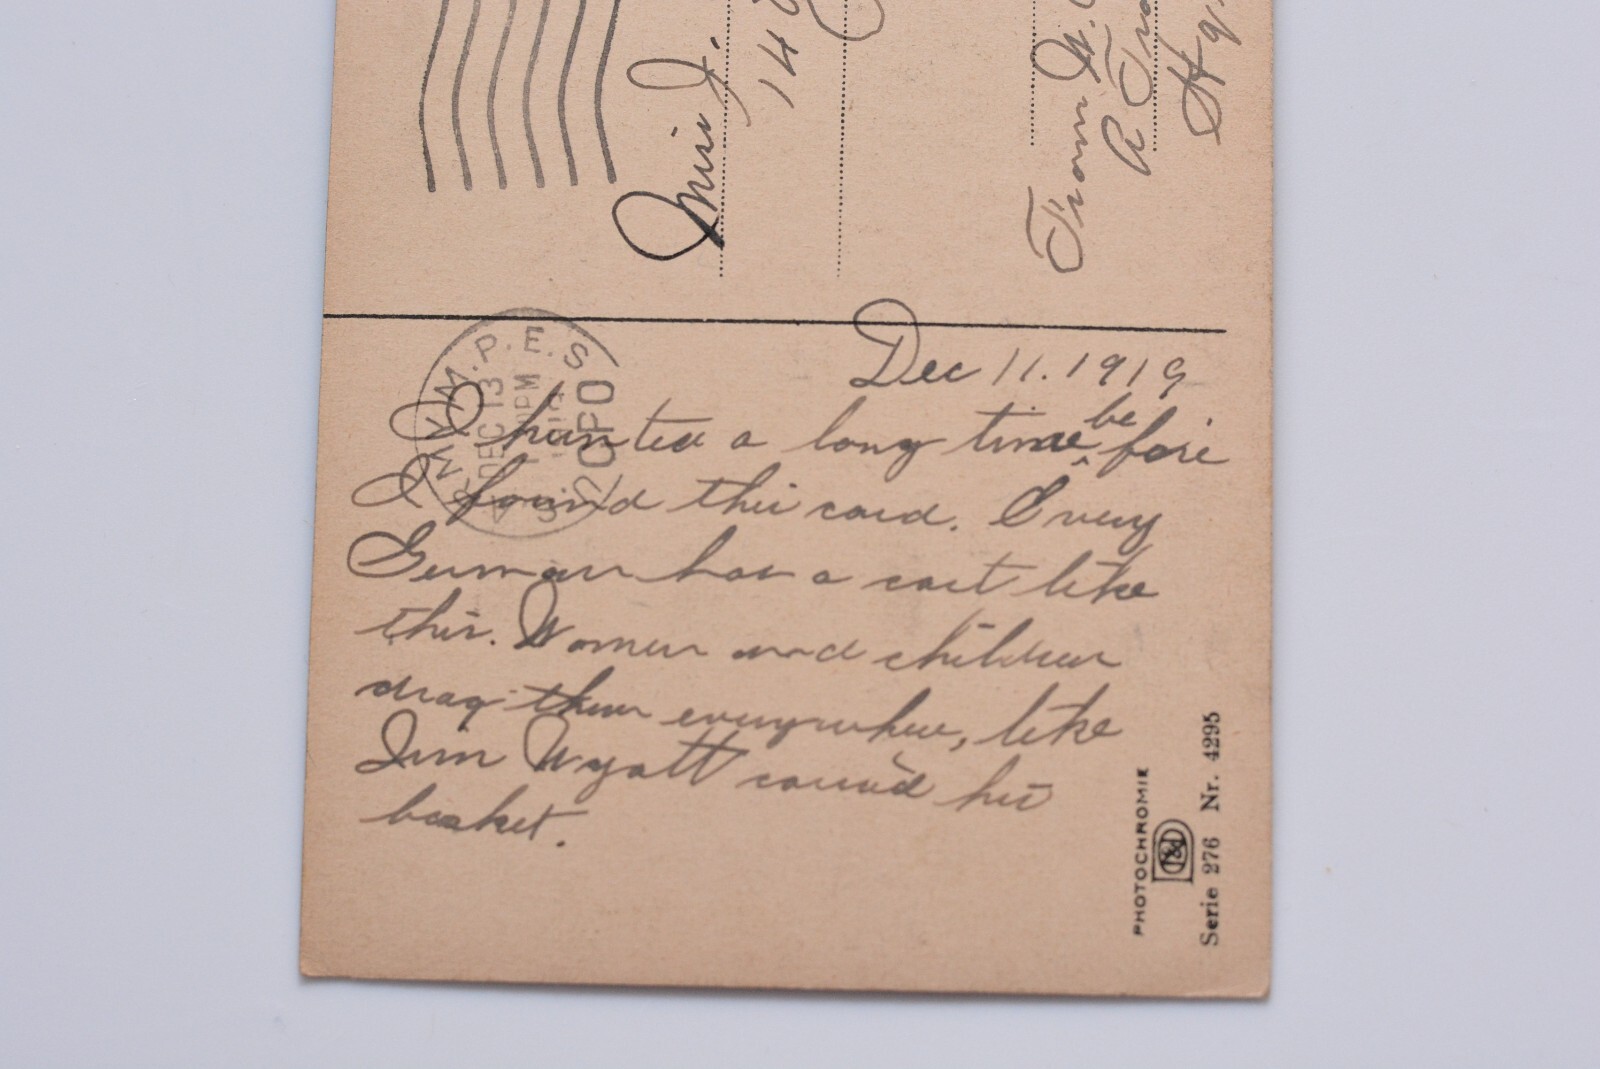 Miss J.
14
From W.
A
Hq.
Dec 11. 1919
I hunted a long time before
I found this card. Every
German has a cart like
this. Women and children
drag them everywhere, like
Jim Wyatt carried his
basket.
M.P.E.S.
DEC 13
PM
PHOTOCHROMIE
Serie 276 Nr. 4295